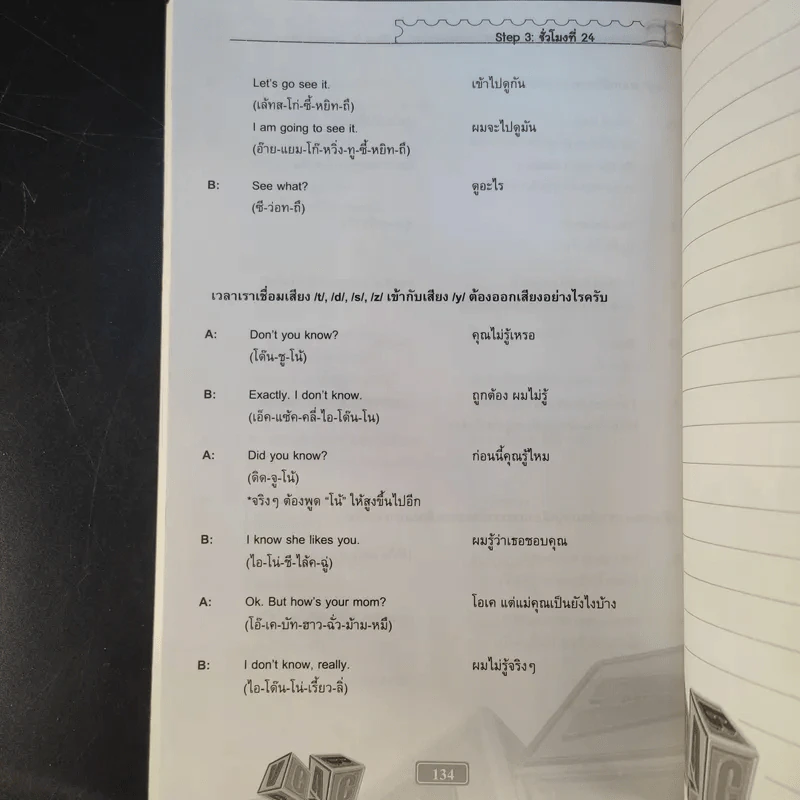 Step 3: ชั่วโมงที่ 24
Let's go see it. เข้าไปดูกัน
(เล้ทส-โก่-ซี้-หยิท-ถึ)
I am going to see it. ผมจะไปดูมัน
(อ๊าย-แยม-โก๊-หวิ่ง-ทู-ซี้-หยิท-ถึ)
B: See what? ดูอะไร
(ซี-ว่อท-ถึ)
เวลาเราเชื่อมเสียง /t/, /d/, /s/, /z/ เข้ากับเสียง /y/ ต้องออกเสียงอย่างไรครับ
A: Don't you know? คุณไม่รู้เหรอ
(โด๊น-ชู-โน้)
B: Exactly. I don't know. ถูกต้อง ผมไม่รู้
(เอ็ค-แซ้ค-คลี่-ไอ-โด๊น-โน)
A: Did you know? ก่อนนี้คุณรู้ไหม
(ดิด-จู-โน้)
*จริงๆ ต้องพูด "โน้" ให้สูงขึ้นไปอีก
B: I know she likes you. ผมรู้ว่าเธอชอบคุณ
(ไอ-โน่-ชี-ไล้ค-ฉู่)
A: Ok. But how's your mom? โอเค แต่แม่คุณเป็นยังไงบ้าง
(โอ๊-เค-บัท-ฮาว-ฉั่ว-ม้าม-หมึ)
B: I don't know, really. ผมไม่รู้จริงๆ
(ไอ-โด๊น-โน่-เรี้ยว-ลิ่)
134